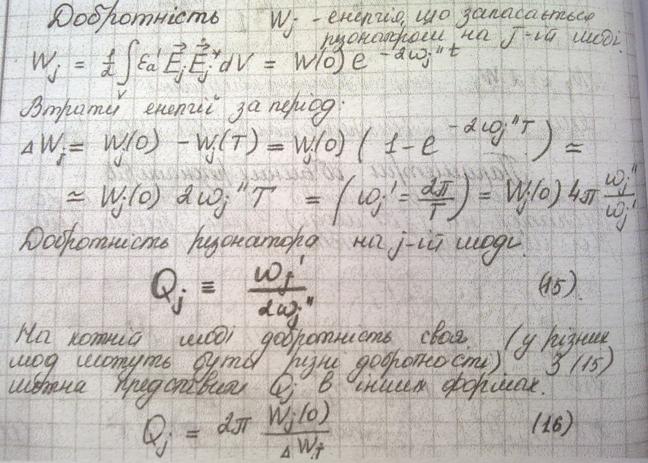 Добротність Wj - енергія, що запасається
резонатором на j-ій моді.
Wj = 1/2 ∫_V εa' E⃗j E⃗j* dV = W(0) e^(-2ωj'' t)
Втрати енергії за період:
ΔWj = Wj(0) - Wj(T) = Wj(0) (1 - e^(-2ωj'' T)) ≃
≃ Wj(0) 2ωj'' T = (ωj' = 2π/T) = Wj(0) 4π ωj''/ωj'
Добротність резонатора на j-ій моді.
Qj ≡ ωj' / 2ωj'' (15).
На кожній моді добротність своя. (у різних
мод можуть бути різні добротності). З (15)
можна представити Qj в інших формах.
Qj = 2π Wj(0) / ΔWj (16)